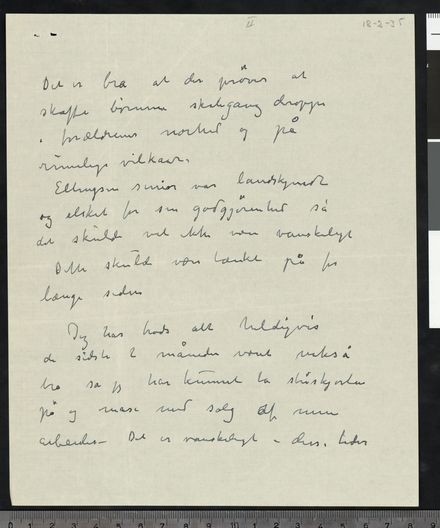 II 18-2-35
Det er bra at der prøves at
skaffe börnene skolegang deroppe
i forældrenes nærhed og på
rimelige vilkaar.
Ellingsen senior var landskjendt
og elsket for sin godgjörenhed så
det skulde vel ikke være vanskeligt
Dette skulde være tænkt på for
længe siden
Jeg har trods alt heldigvis
de sidste 2 måneder været också
bra så jeg har kunnet ta
på og mase med salg af mine
arbeider – Det er vanskeligt – disse tider